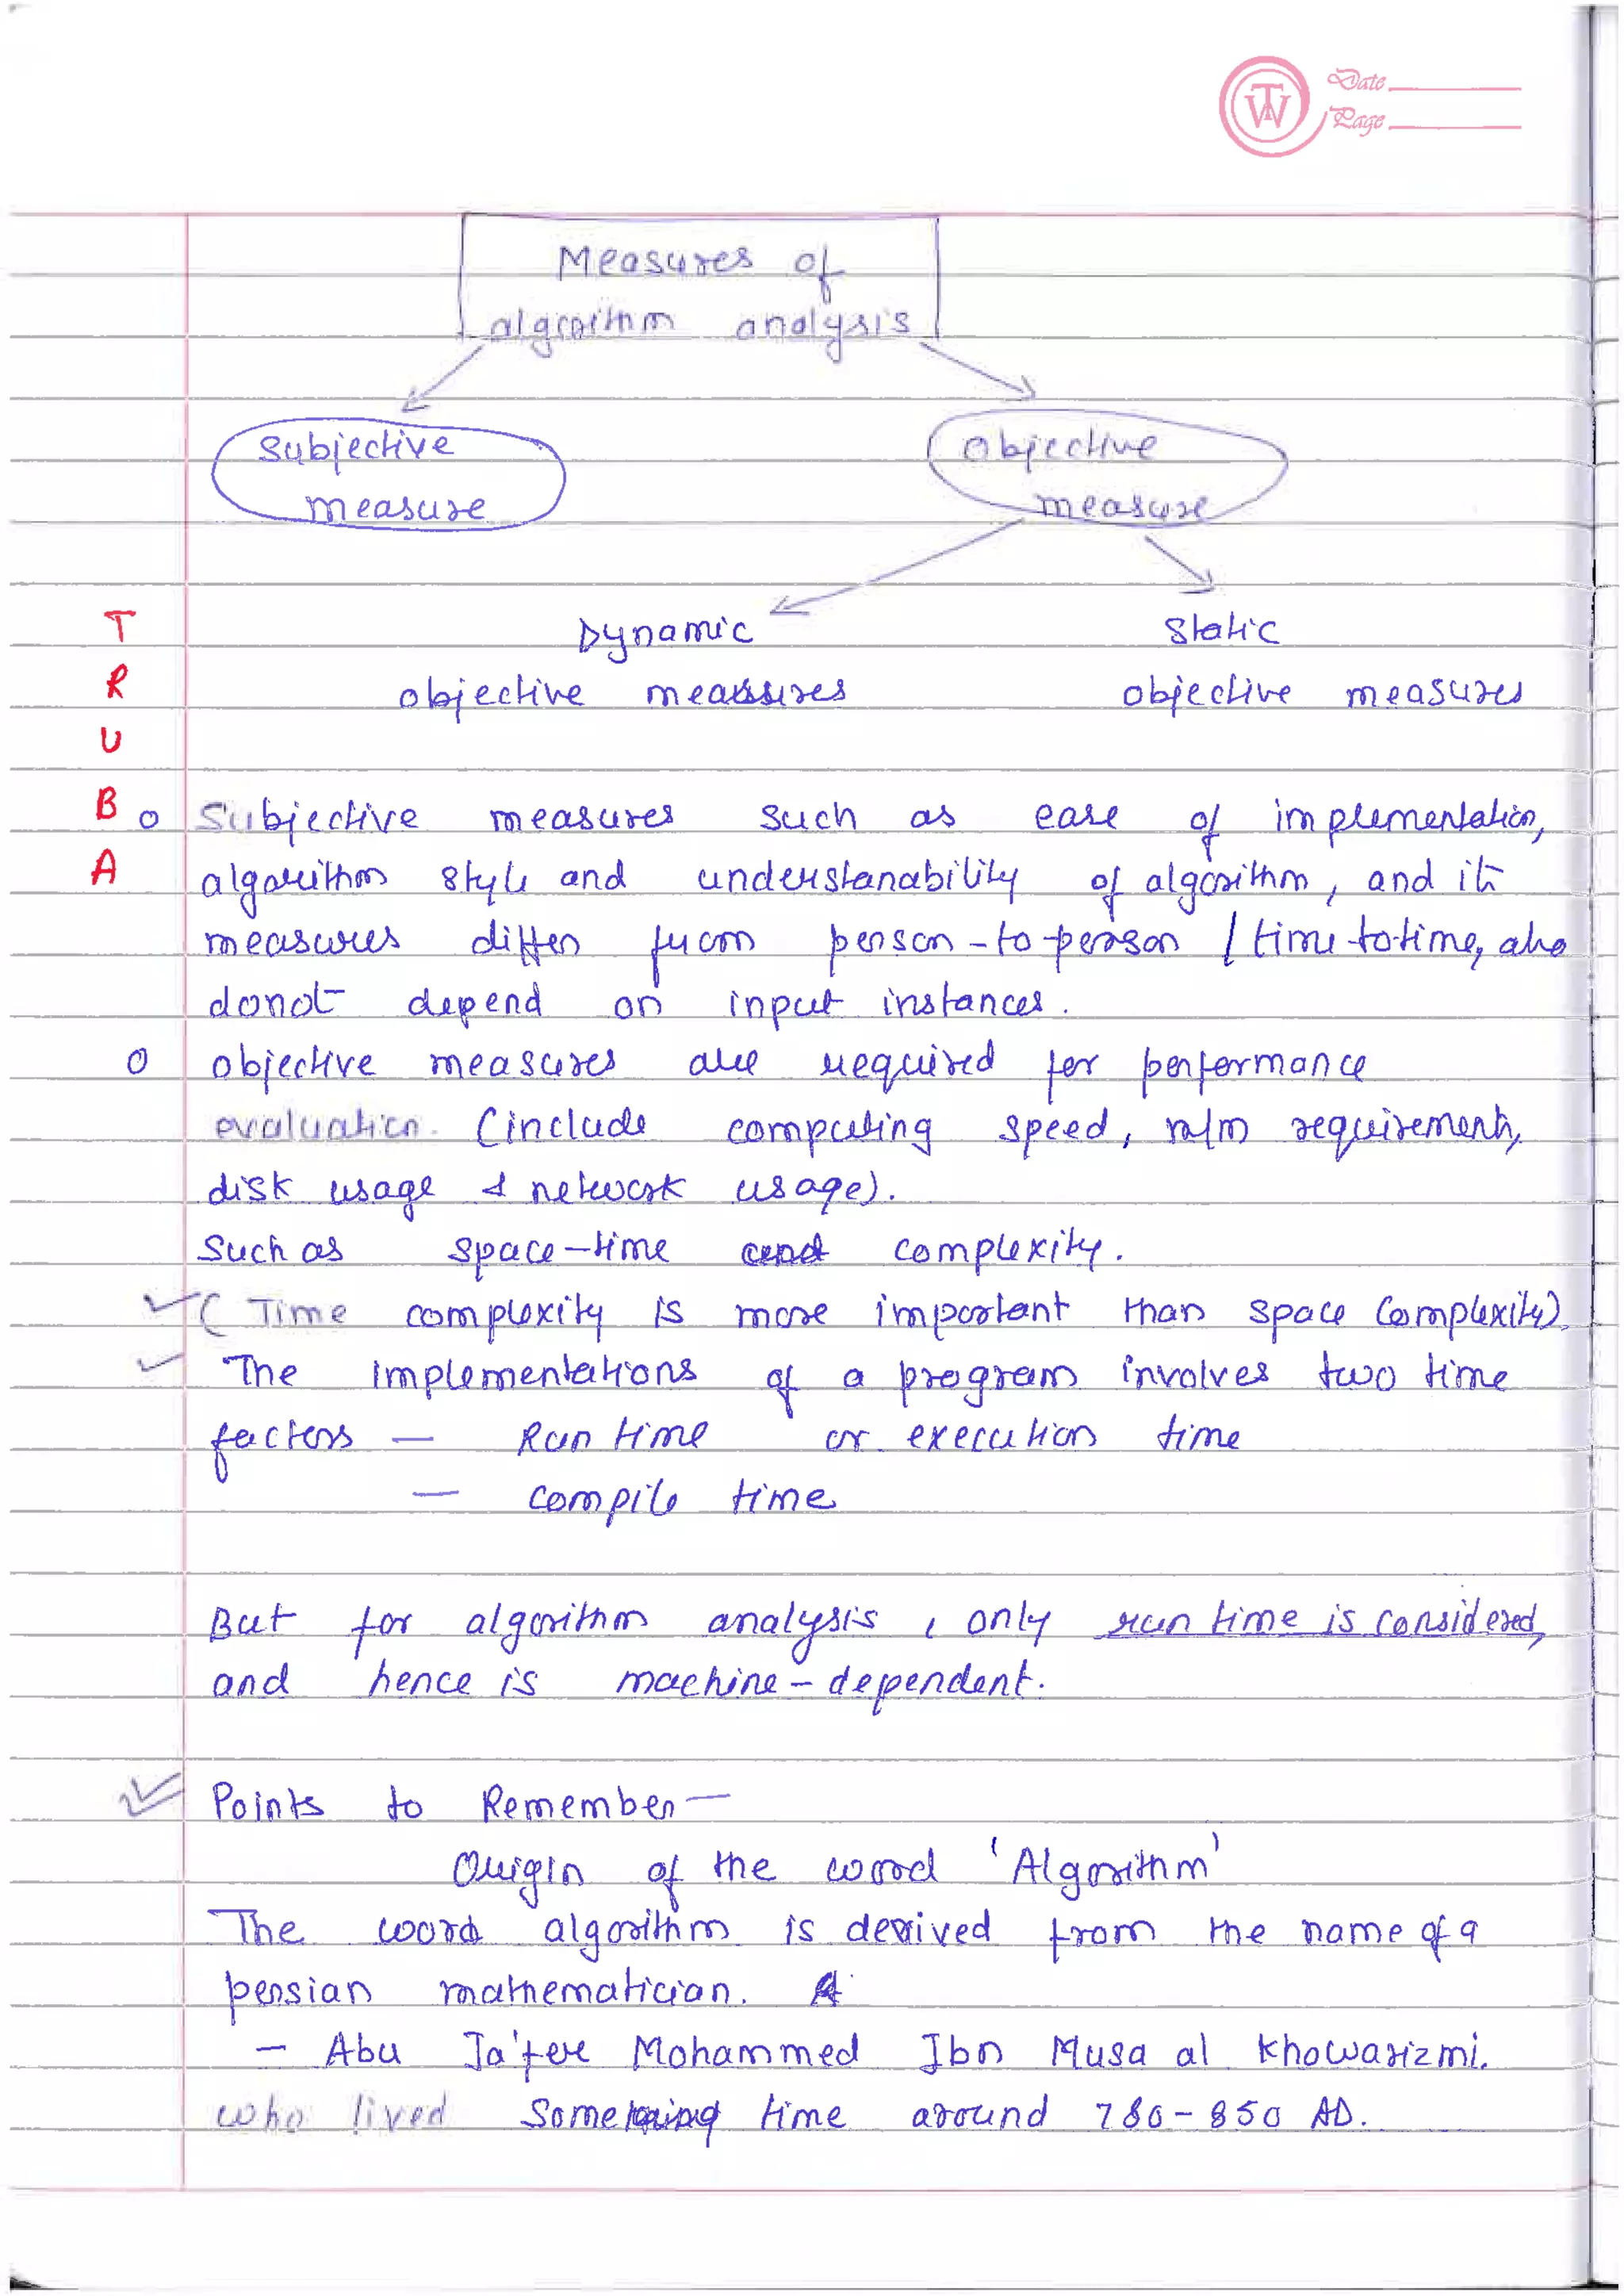 TW
Date
Page
Measures of
algorithm analysis
Subjective
measure
Objective
measure
Dynamic
objective measures
Static
objective measures
T
R
U
B
A
o Subjective measures such as ease of implementation,
algorithm style and understanability of algorithm, and its
measures differ from person-to-person / time-to-time, also
donot depend on input instances.
o objective measures are required for performance
evaluation. (include computing speed, m/m requirements,
disk usage & network usage).
Such as space-time complexity.
✓ (Time complexity is more important than space complexity).
✓ The implementations of a program involves two time
factors — Run time or execution time
— compile time
But for algorithm analysis, only run time is considered,
and hence is machine-dependent.
✓ Points to Remember —
Origin of the word 'Algorithm'
The word algorithm is derived from the name of a
persian mathematician.
— Abu Ja'fer Mohammed Ibn Musa al khowarizmi.
who lived Some time around 780-850 AD.